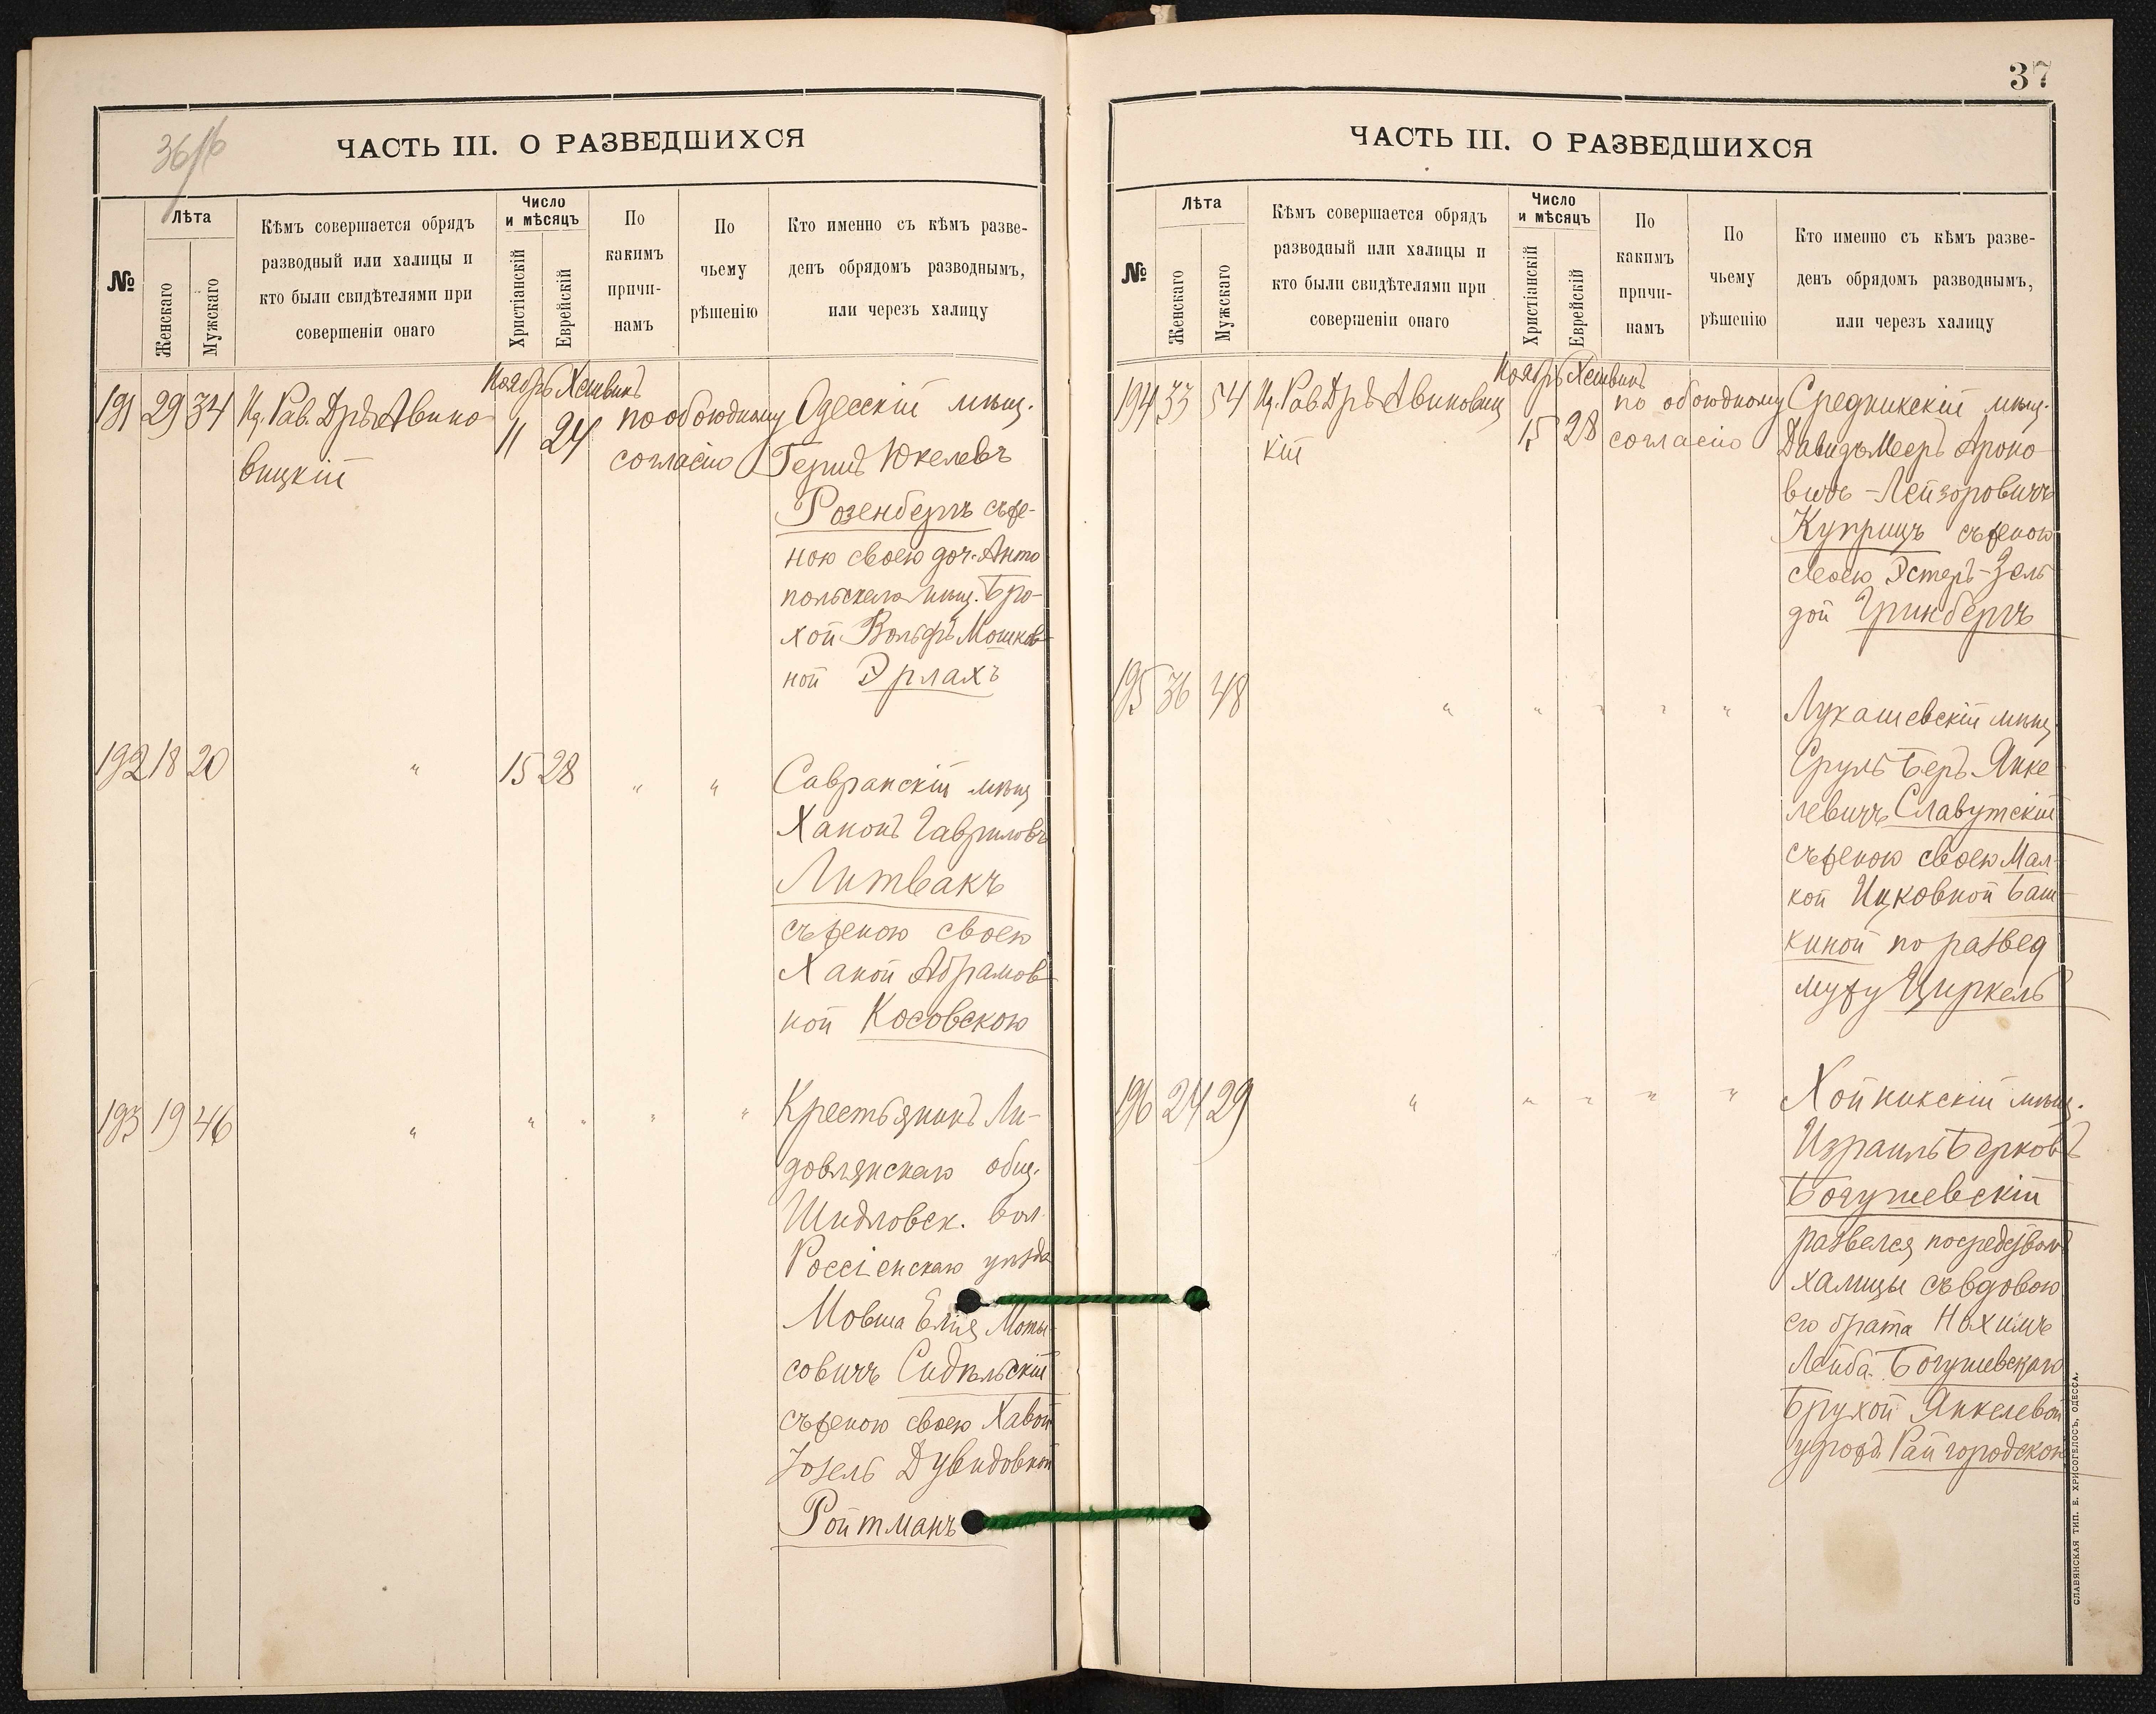 36/б
ЧАСТЬ III. О РАЗВЕДШИХСЯ
№
Лѣта
Женскаго
Мужскаго
Кѣмъ совершается обрядъ
разводный или халицы и
кто были свидѣтелями при
совершеніи онаго
Число
и мѣсяцъ
Христіанскій
Еврейскій
По
какимъ
причи-
намъ
По
чьему
рѣшенію
Кто именно съ кѣмъ разве-
денъ обрядомъ разводнымъ,
или черезъ халицу
Ноябрь Хешвинъ
191 29 34 Ид. Рав. Дръ Авино
вицкій
11 24 по обоюдному
согласію
Одесскій мѣщ.
Гершъ Юкелевъ
Розенбергъ съ же-
ною своею доч. Анто
польскаго мѣщ. Бро-
хой Вольфъ Мошков
ной Эрлахъ
192 18 20 " 15 28 " "
Савранскій мѣщ
Ханонъ Гавриловъ
Литвакъ
съ женою своею
Ханой Абрамов
ной Косовскою
193 19 46 " " " " "
Крестьянинъ Ли-
довлянскаго общ.
Шидловск. вол.
Россіенскаго уѣзда
Мовша Елія Моты-
совичъ Сидѣльскій
съ женою своею Хавой
Зозель Дувидовной
Ройтманъ
37
ЧАСТЬ III. О РАЗВЕДШИХСЯ
№
Лѣта
Женскаго
Мужскаго
Кѣмъ совершается обрядъ
разводный или халицы и
кто были свидѣтелями при
совершеніи онаго
Число
и мѣсяцъ
Христіанскій
Еврейскій
По
какимъ
причи-
намъ
По
чьему
рѣшенію
Кто именно съ кѣмъ разве-
денъ обрядомъ разводнымъ,
или черезъ халицу
Ноябрь Хешвинъ
194 33 54 Ид. Рав. Дръ Авиновиц
кій
15 28 по обоюдному
согласію
Средникскій мѣщ.
Давидъ Мееръ Ароно
вичъ-Лейзоровичъ
Куприцъ съ женою
своею Эстеръ-Зель
дой Гринбергъ
195 36 48 " " " " "
Лукашевскій мѣщ.
Сруль Беръ Янке
левичъ Славутскій
съ женою своею Мал-
кой Ицковной Баш-
киной по развед
мужу Циркель
196 24 29 " " " " "
Хойникскій мѣщ.
Израиль Берковъ
Богушевскій
развелся посредствомъ
халицы съ вдовою
его брата Нахимъ
Лейба Богушевскаго
Брухой Янкелевой
урожд. Райгородскою
СЛАВЯНСКАЯ ТИП. Е. ХРИСОГЕЛОСЪ, ОДЕССА.